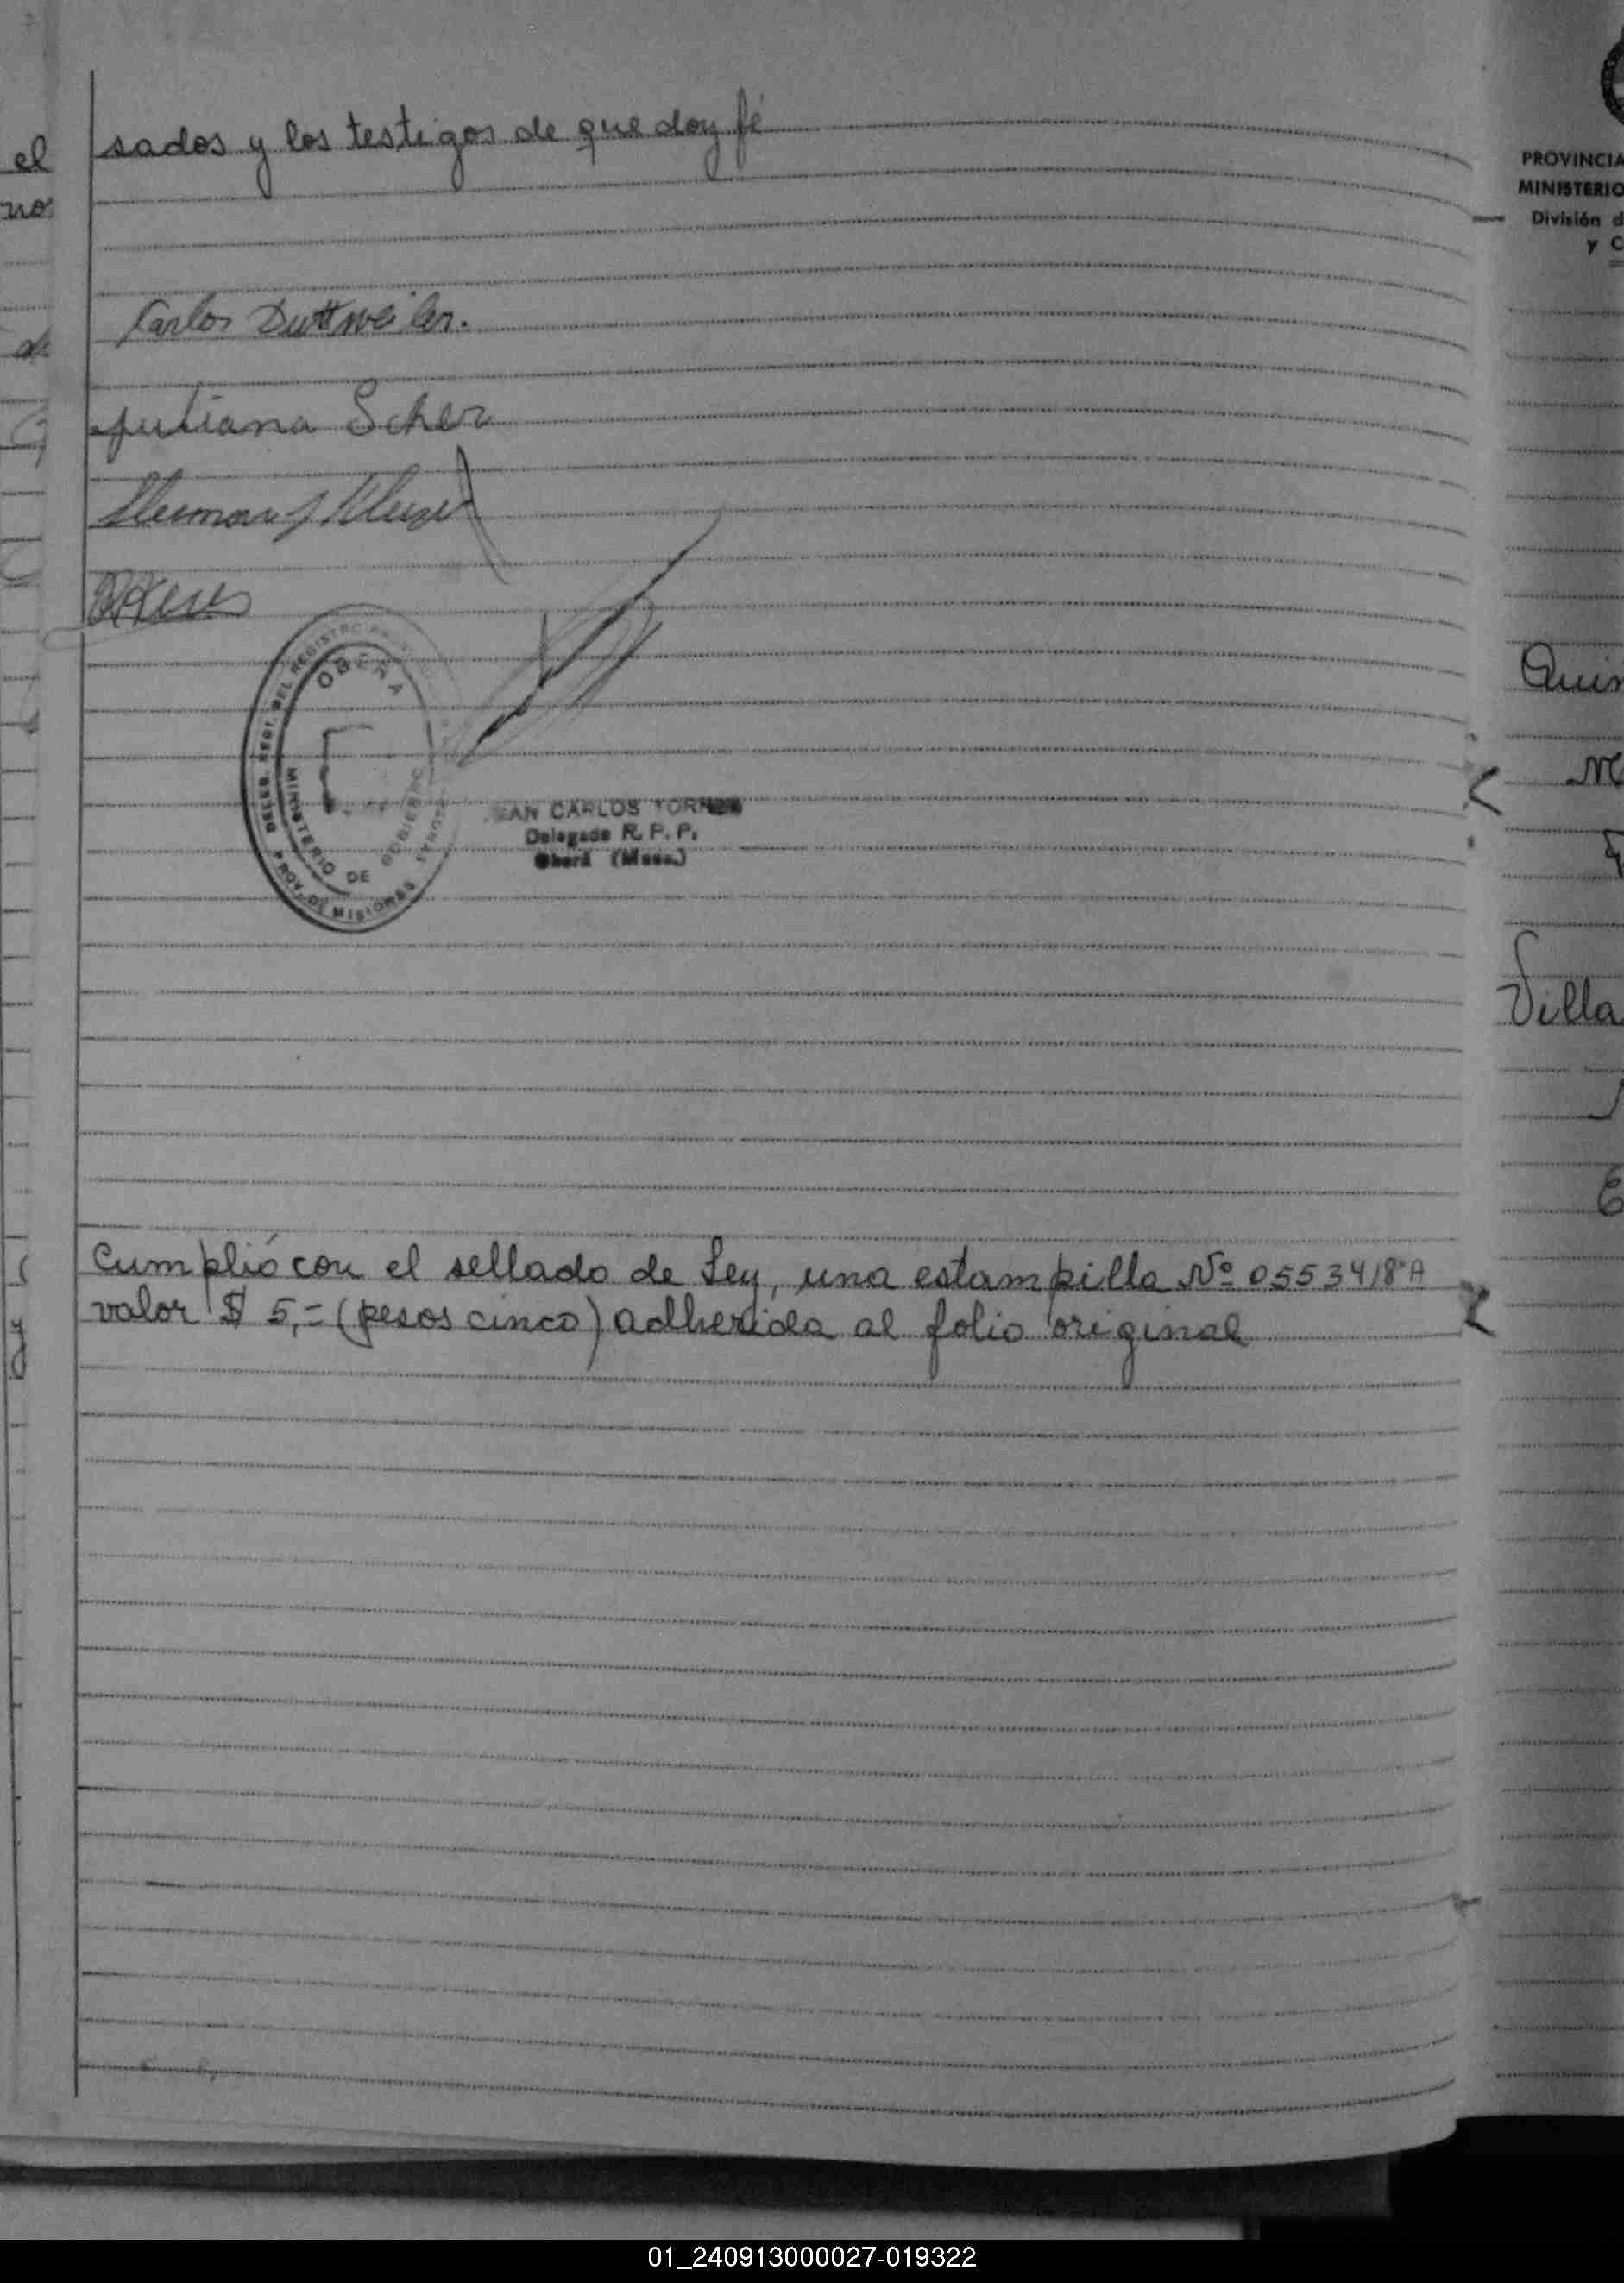 sados y los testigos de que doy fé
Carlos Duttweiler.
Juliana Scher
OBERA
MINISTERIO DE GOBIERNO
PROV. DE MISIONES
SAN CARLOS TORRES
Delegado R. P. P.
Oberá (Mnes.)
Cumplió con el sellado de Ley, una estampilla Nº 0553418"A
valor $ 5,= (pesos cinco) adherida al folio original
el
nos
y
PROVINCIA
MINISTERIO
División d
y C
Quin
Villa
01_240913000027-019322